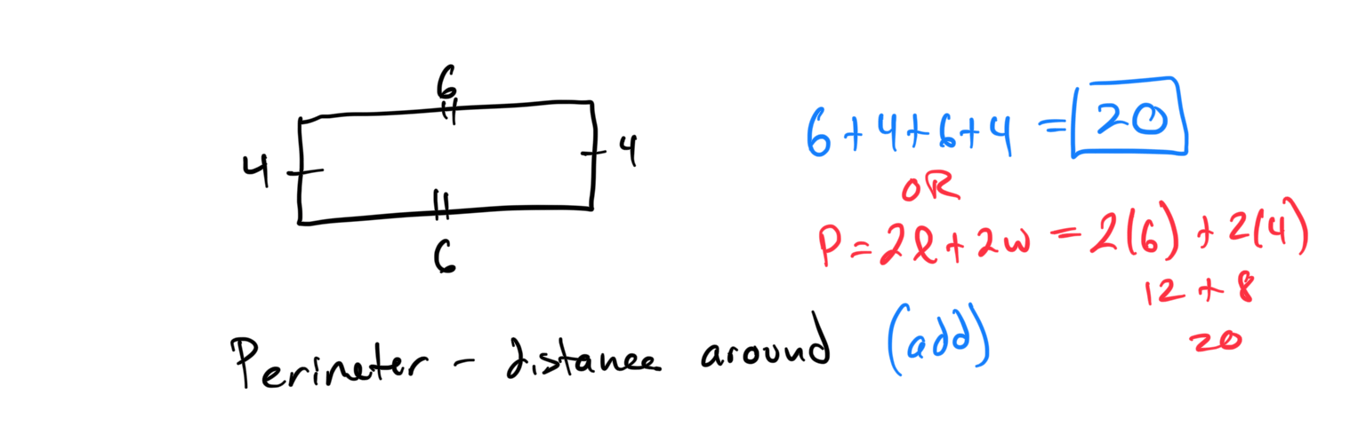 6
4
4
6
6+4+6+4 = 20
OR
P = 2l + 2w = 2(6) + 2(4)
12 + 8
20
Perimeter - distance around (add)